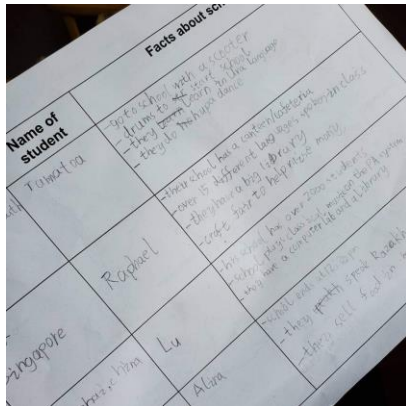 Name of
student
Facts about
Tamatoa
- go to school with a scooter
- drums to start school
- they learn in
language
- they do hupa dance
Singapore
Raphael
- their school has a canteen/cafeteria
- over 15 different languages spoken in class
- they have a big library
- craft fair to help raise money
china
Lu
- his school has over 2000 students
- school plays classical music on the PA system
- they have a computer lab and a library
Alina
- school ends at
- they speak
- they sell food in